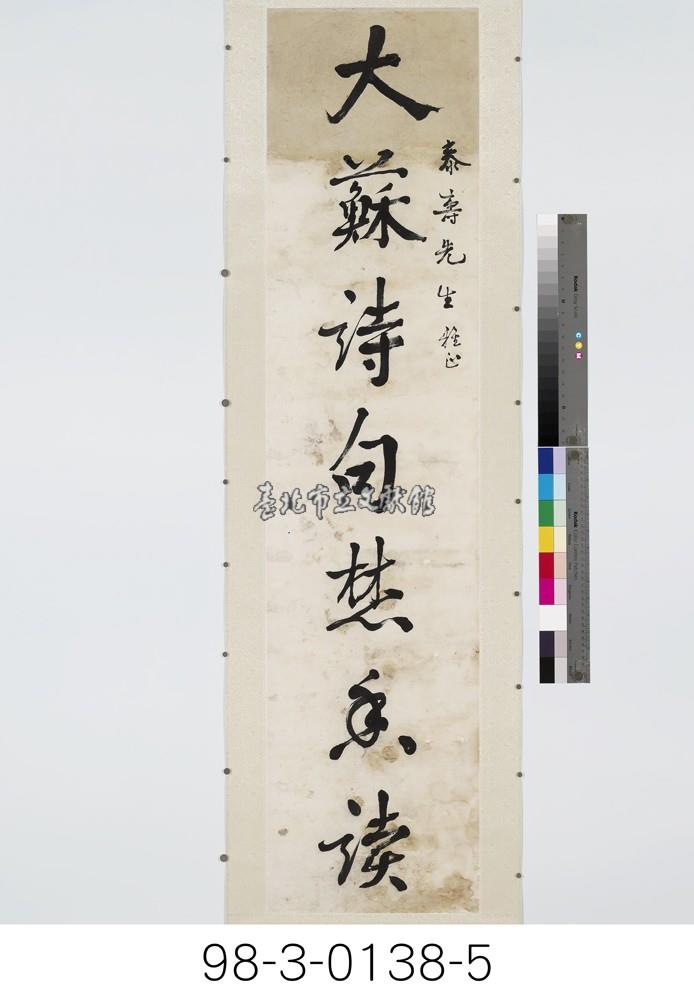 大蘇詩句焚香讀
泰壽先生雅正
臺北市立文獻館
98-3-0138-5